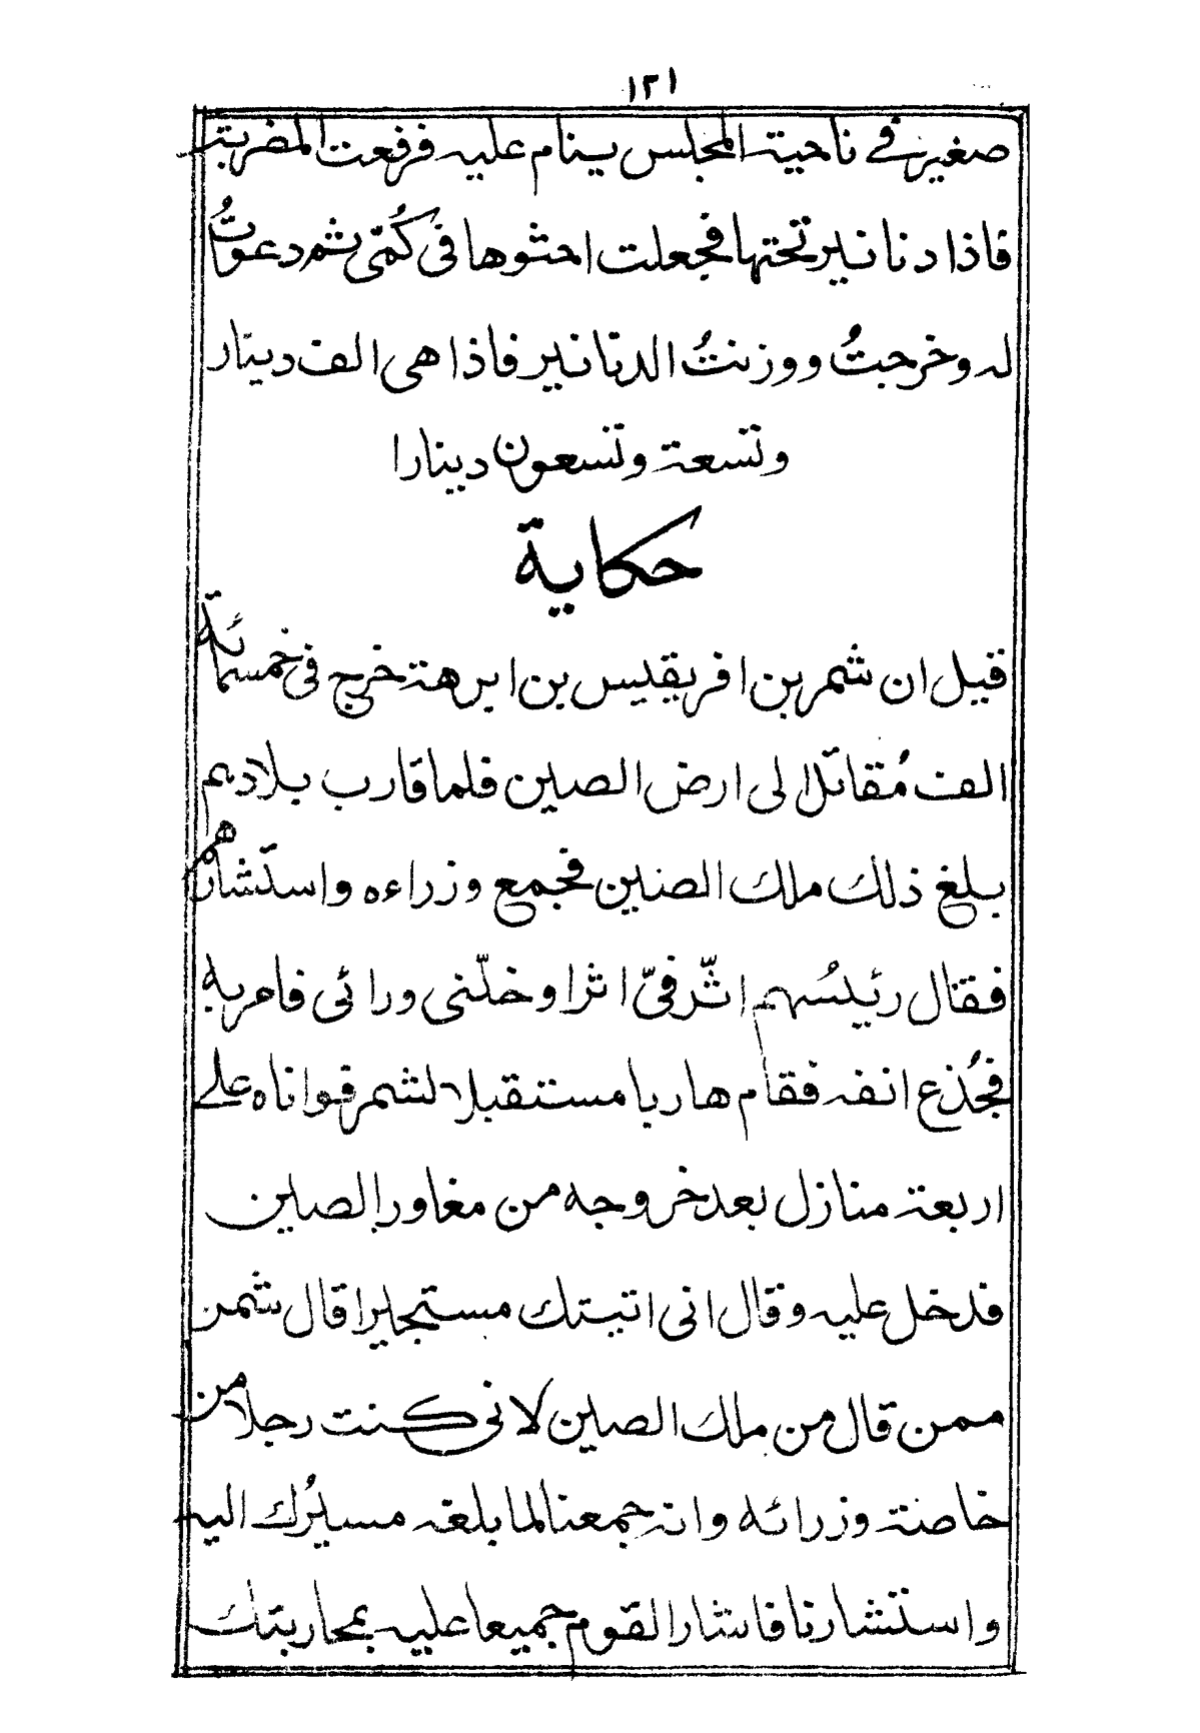 ١٢١
صغير في ناحية المجلس ينام عليه فرفعت المضربة
فاذا دنانير تحتها فجعلت احثوها فى كُمّى ثم دعوتُ
له وخرجتُ ووزنتُ الدنانير فاذا هى الف دينار
وتسعة وتسعون دينارا
حكاية
قيل ان شمر بن افريقيس بن ابرهة خرج فى خمسمائة
الف مُقاتل الى ارض الصين فلما قارب بلادهم
بلغ ذلك ملك الصين فجمع وزراءه واستشارهم
فقال رئيسُهم اثّر فىّ اثرا وخلّنى ورائى فامر به
فجُذع انفه فقام هاربا مستقبلا لشمر فوافاه على
اربعة منازل بعد خروجه من مغاور الصين
فدخل عليه وقال انى اتيتك مستجيرا قال شمر
ممن قال من ملك الصين لانى كنت رجلا من
خاصة وزرائه وانه جمعنا لما بلغه مسيرُك اليه
واستشارنا فاشار القوم جميعا عليه بمحاربتك